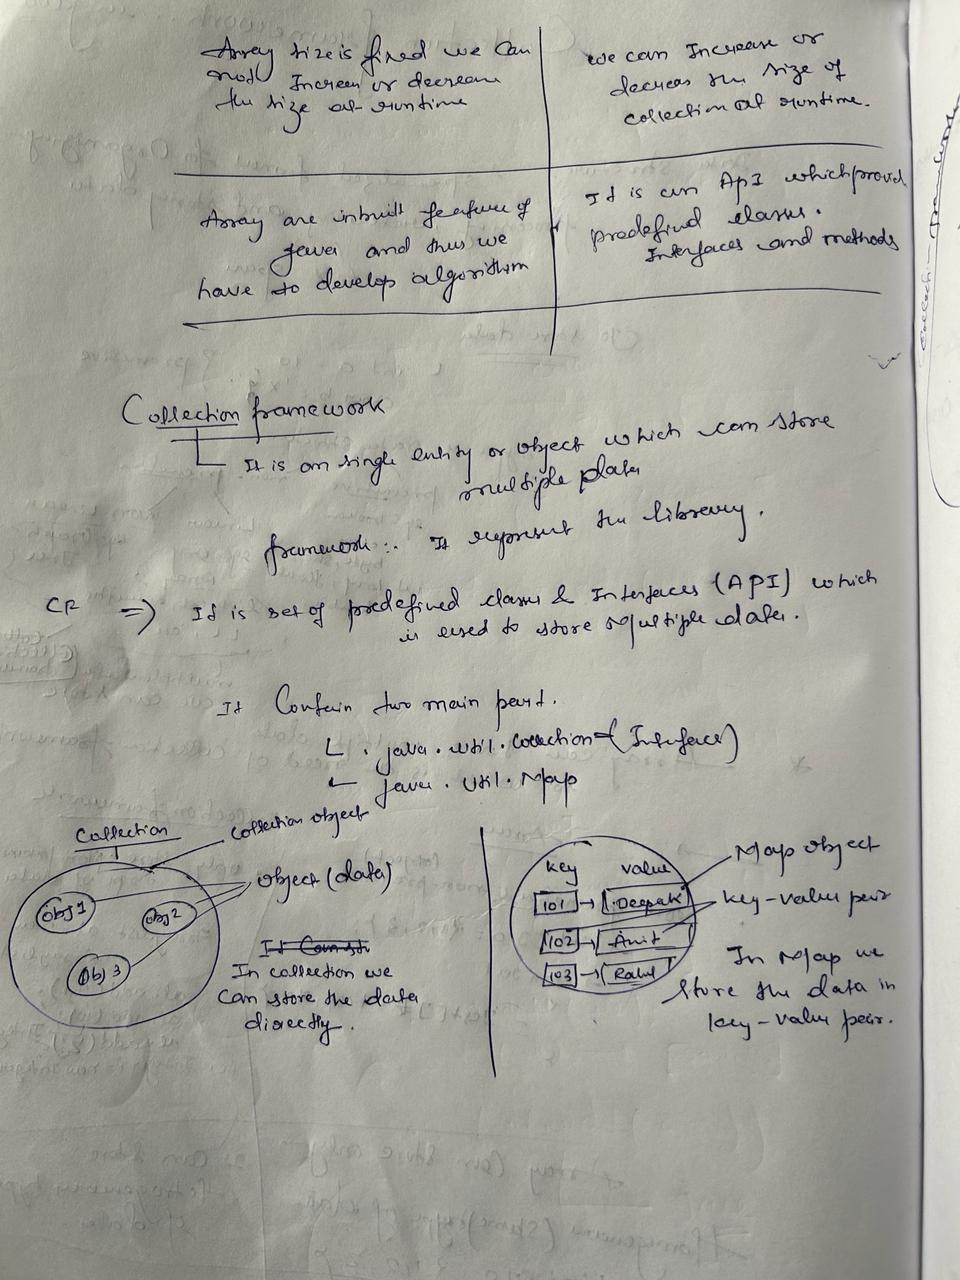 Array size is fixed we can
not Increas or decrease
the size at runtime
we can Increase or
decreas the size of
collection at runtime.
Array are inbuilt feature of
java and thus we
have to develop algorithm
It is an ApI which provid
predefind classes.
Interfaces and methods
Collection framework
It is an single entity or object which can store
multiple data
framework :. It represent the library.
CF => It is set of predefined classes & Interfaces (API) which
is used to store multiple data.
It Contain two main part.
. java.util.collection (Interface)
java.util.Map
Collection
Collection object
object (data)
obj 1
obj 2
obj 3
In collection we
can store the data
directly.
key value
101 → Deepak
102 → Amit
103 → Rahul
Map object
key-value pair
In Map we
store the data in
key-value pair.